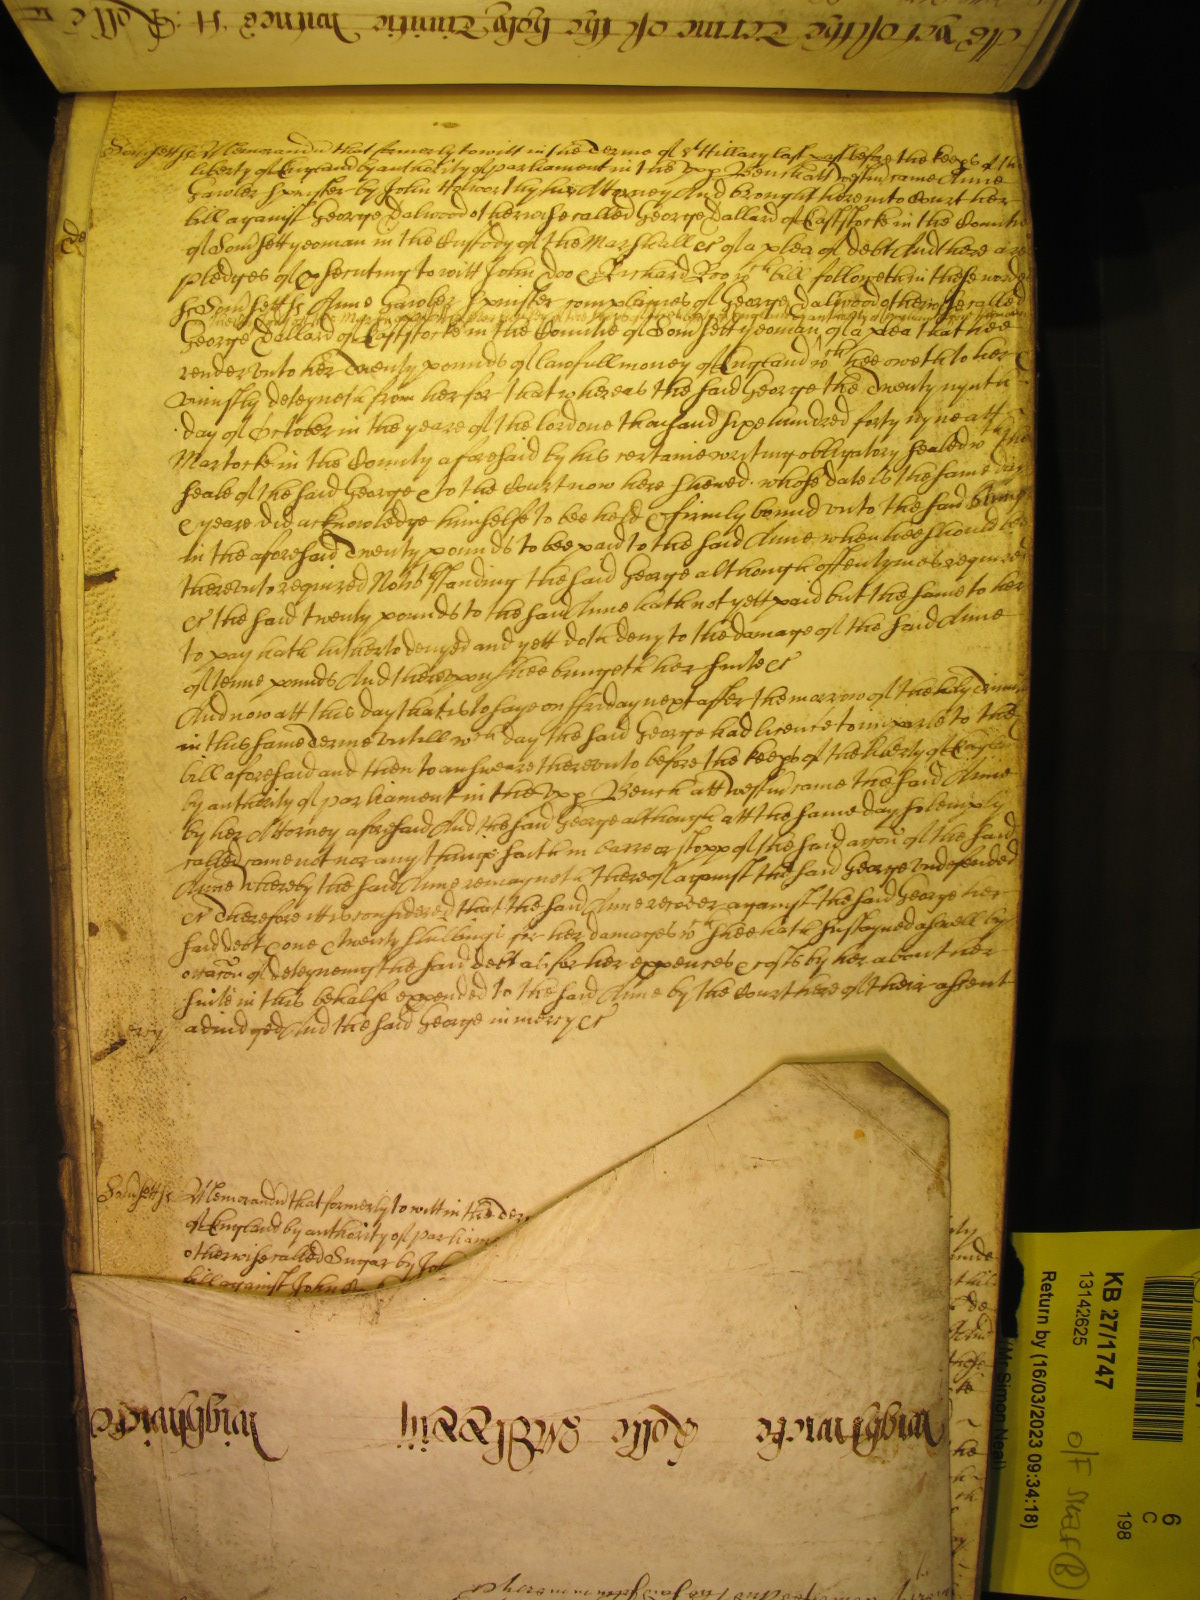 As yet of the Terme of the holy Trinitie Witnes H: Rolle
Somsett ss Memorandu that formerly to witt in the Terme of St Hillary last past before the keeps of the
liberty of England by authority of parliament in the upp Bench att Westm came Anne
Gawler Spinster by John Halworthy his Attorney And brought here into Court her
bill against George Dalwood otherwise called George Dallard of Eaststocke in the Countie
of Somsett yeoman in the Custody of the Marshall &c of a plea of debt And there are
pledges of psecuting to witt John Doo & Richard Roo wch bill followeth in these words
ss Somsett ss Anne Gawler Spinster complaines of George Dalwood otherwise called
George Dallard of Eaststocke in the Countie of Somsett yeoman of a plea that hee
render unto her Twenty pounds of lawfull money of England wch hee oweth to her &
uniustly deteyneth from her for that whereas the said George the Twenty nynth
day of October in the yeare of the lord one thousand sixe hundred forty nyne att
Martocke in the County aforesaid by his certaine writing obligatory sealed wth the
seale of the said George & to the Court now here shewed whose date is the same day
& yeare did acknowledge himselfe to bee held & firmly bound unto the said Anne
in the aforesaid Twenty pounds to bee paid to the said Anne when hee should bee
thereunto required Nothwthstanding the said George although oftentymes required
&c the said twenty pounds to the said Anne hath not yett paid but the same to her
to pay hath hitherto denyed and yett doth deny to the damage of the said Anne
of tenne pounds And thereupon shee bringeth her suite &c
And now att this day that is to saye on ffriday next after the morrow of the holy Trinitie
in this same Terme untill wch day the said George had licence to imparle to the
bill aforesaid and then to answeare thereunto before the keeps of the liberty of England
by authority of parliament in the upp Bench att Westm came the said Anne
by her Attorney aforesaid And the said George although att the same day solemply
called came not nor any thinge saith in barre or stopp of the said accon of the said
Anne whereby the said Anne remayneth thereof against the said George undefended
&c Therefore itt is considered that the said Anne recover against the said George her
said debt & one & twenty shillings for her damages wch shee hath susteyned aswell by
occacon of deteyneing the said debt as for her expences & costs by her about her
suite in this behalfe expended to the said Anne by the Court here of their assent
adiudged And the said George in mercy &c
mercy
Somsett ss Memorandu that formerly to witt in the Ter
of England by authority of parliame
otherwise called Sugar by Joh
bill against John
Wightwicke Rolle Wightwicke
KB 27/1747
13142625
Return by (16/03/2023 09:34:18)
(Mr Simon Neal)
6
C
198